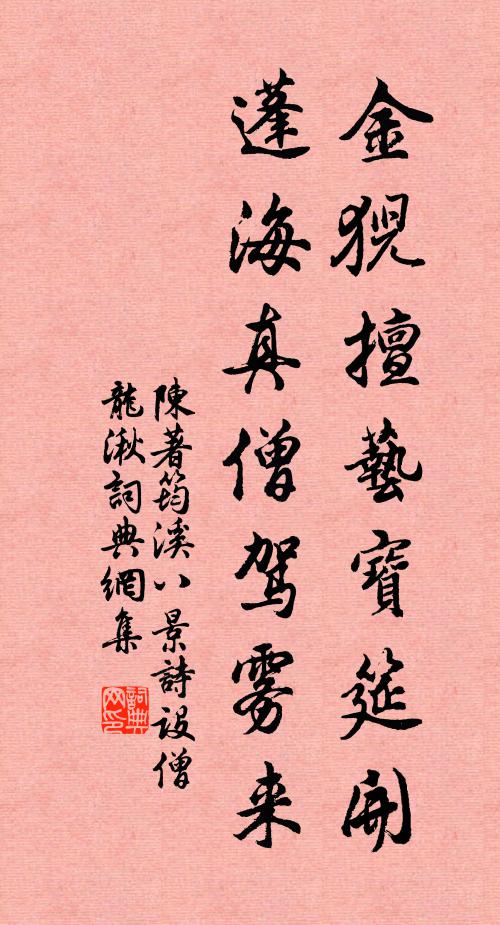 金猊擅藝寶筵開
蓬海真僧駕雾来
陳著筠溪八景詩設僧
龍湫詞典網集
詞典网印